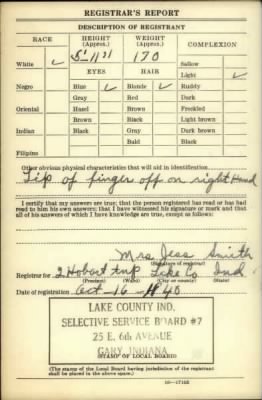 REGISTRAR'S REPORT
DESCRIPTION OF REGISTRANT
RACE
HEIGHT (Approx.)
WEIGHT (Approx.)
COMPLEXION
White ✓
5' 11"
170
Sallow
EYES
HAIR
Light ✓
Negro
Blue ✓
Blonde ✓
Ruddy
Gray
Red
Dark
Oriental
Hazel
Brown
Freckled
Brown
Black
Light brown
Indian
Black
Gray
Dark brown
Bald
Black
Filipino
Other obvious physical characteristics that will aid in identification
Tip of finger off on right Hand
I certify that my answers are true; that the person registered has read or has had
read to him his own answers; that I have witnessed his signature or mark and that
all of his answers of which I have knowledge are true, except as follows:
Mrs Jess Smith
(Signature of registrar)
Registrar for 2 Hobart twp Lake Co Ind
(Precinct) (Ward) (City or county) (State)
Date of registration Oct 16 - 40
LAKE COUNTY IND.
SELECTIVE SERVICE BOARD #7
25 E. 6th AVENUE
GARY, INDIANA
(STAMP OF LOCAL BOARD)
(The stamp of the Local Board having jurisdiction of the registrant
shall be placed in the above space.)